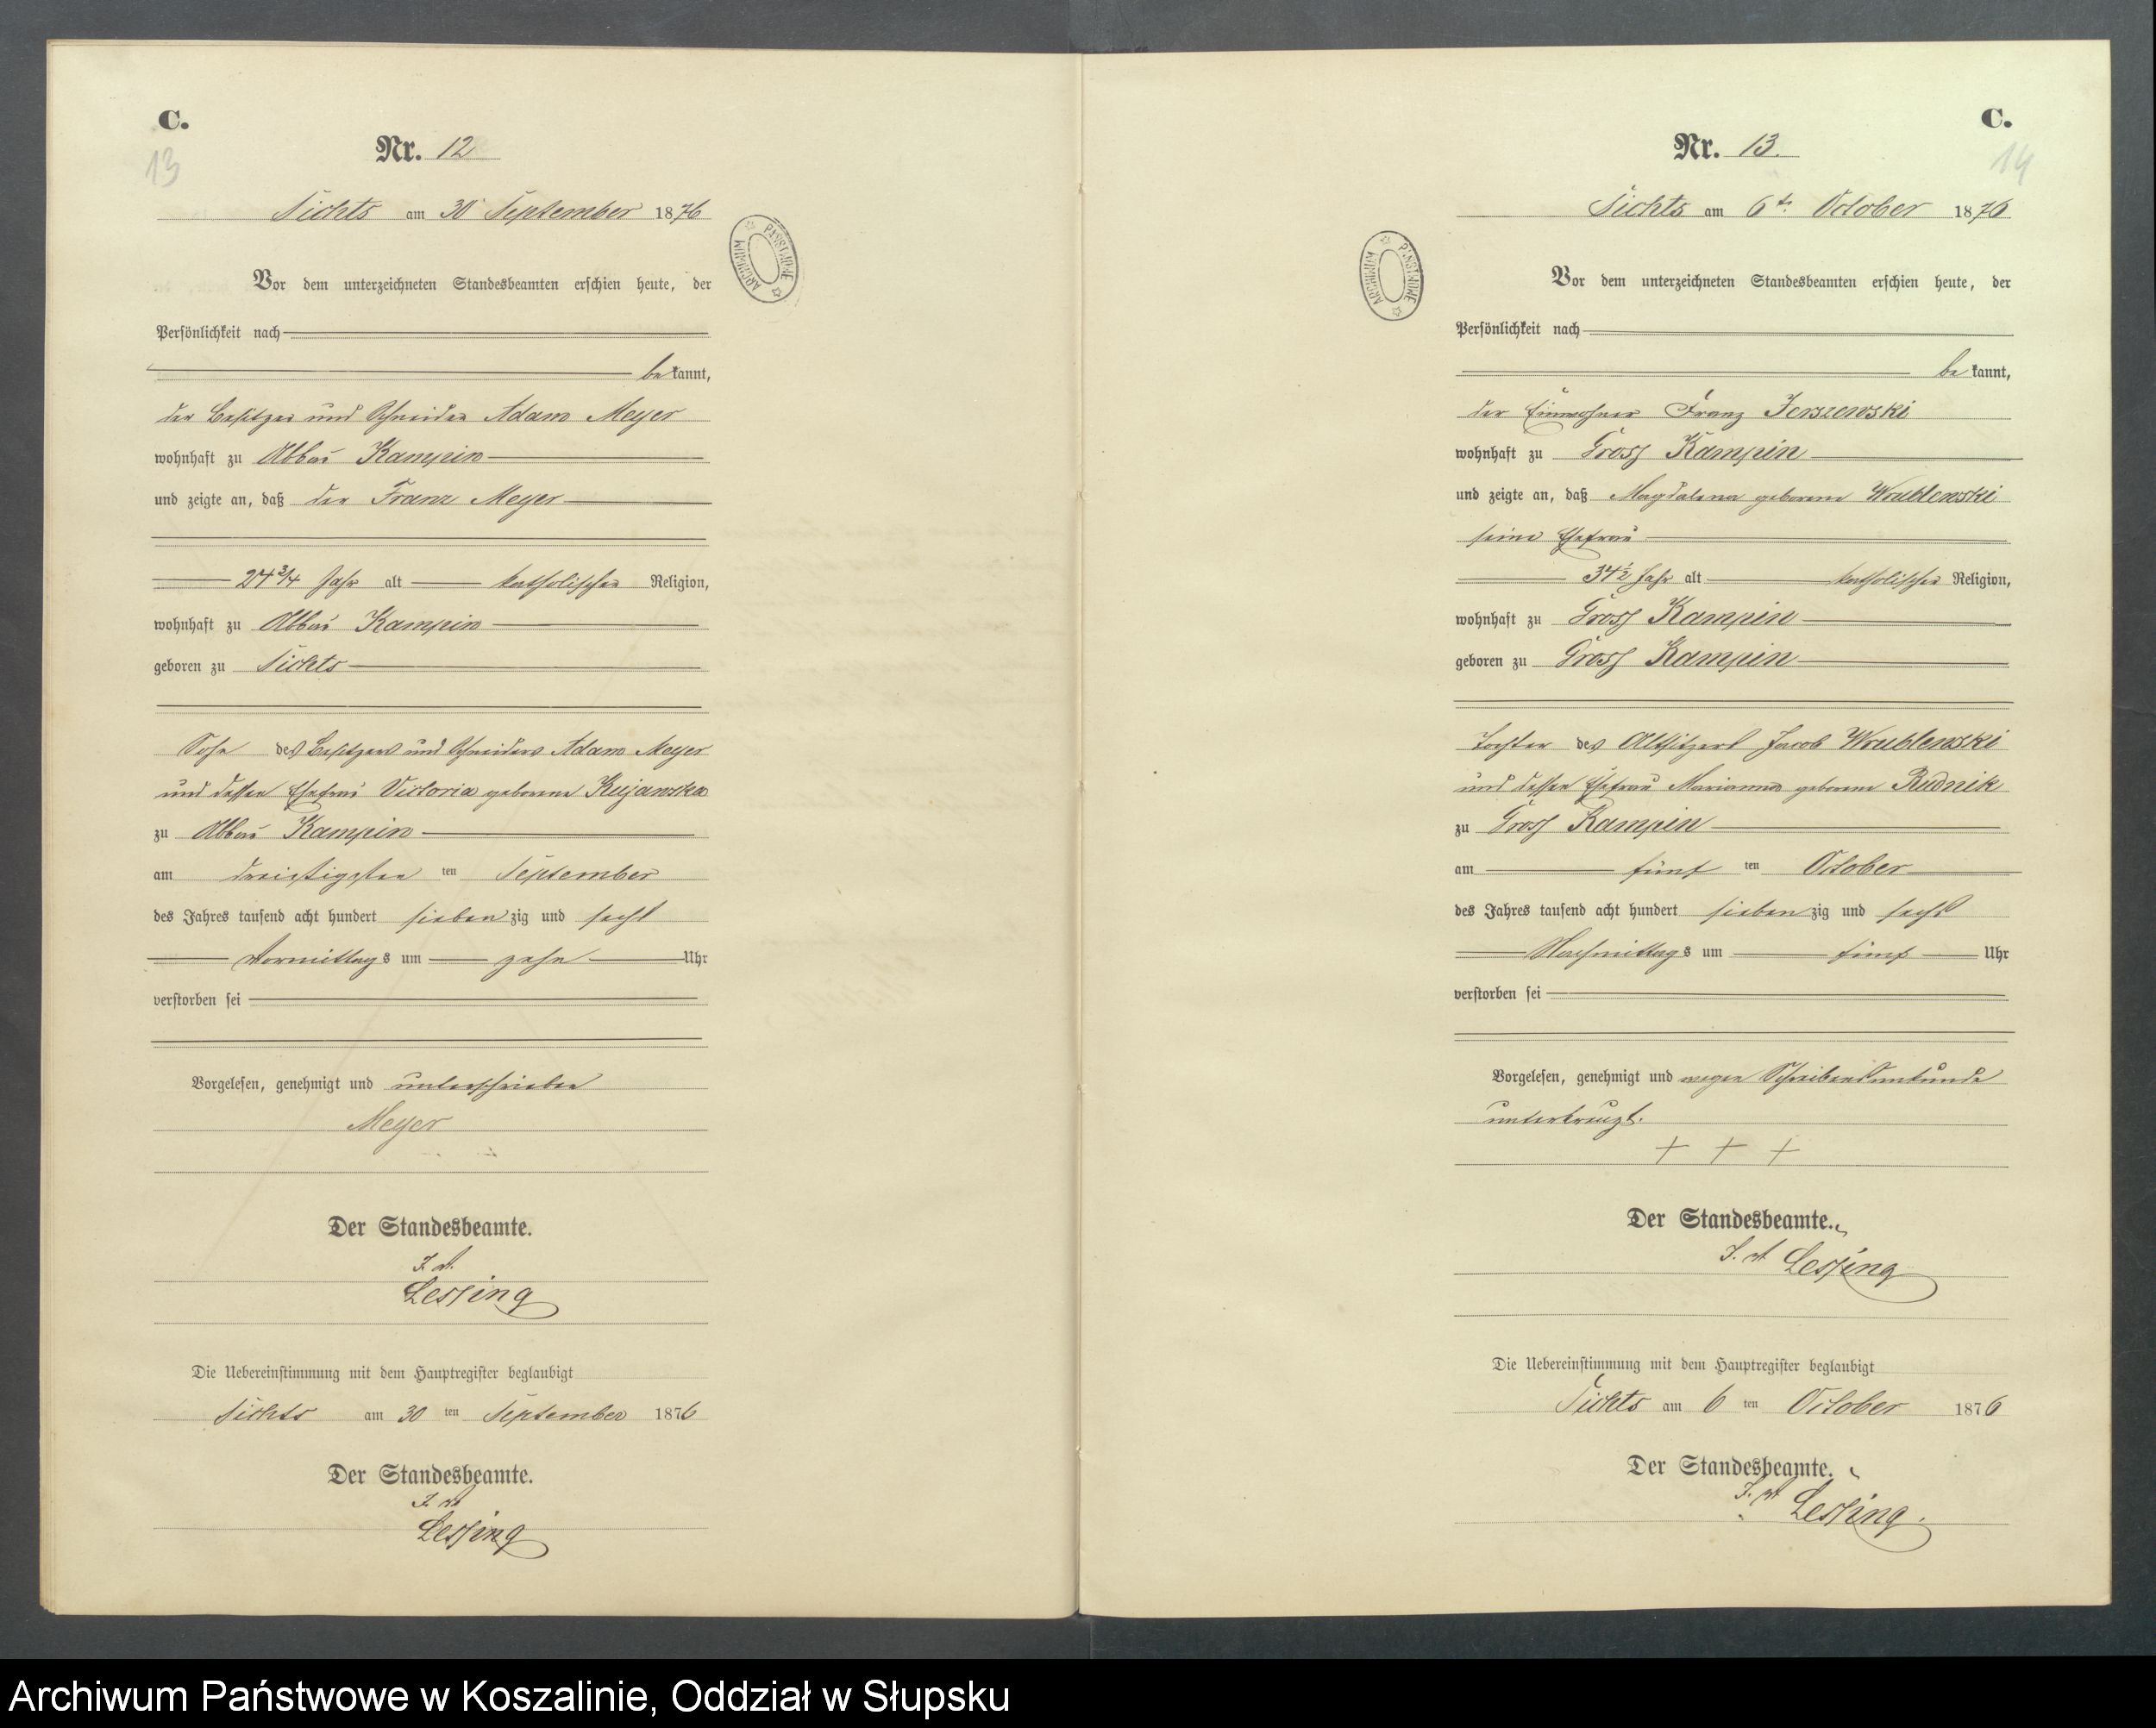 C.
13
Nr. 12
Sichts am 30 September 1876
Vor dem unterzeichneten Standesbeamten erschien heute, der
Persönlichkeit nach
bekannt,
der Besitzer und Schneider Adam Meyer
wohnhaft zu Abbau Kampin
und zeigte an, daß der Franz Meyer
24 3/4 Jahr alt katholischer Religion,
wohnhaft zu Abbau Kampin
geboren zu Sichts
Sohn des Besitzers und Schneiders Adam Meyer
und dessen Ehefrau Victoria geborene Kujawska
zu Abbau Kampin
am dreißigsten ten September
des Jahres tausend acht hundert siebenzig und sechs
Vormittags um zehn Uhr
verstorben sei
Vorgelesen, genehmigt und unterschrieben
Meyer
Der Standesbeamte.
Lessing
Die Uebereinstimmung mit dem Hauptregister beglaubigt
Sichts am 30 ten September 1876
Der Standesbeamte.
Lessing
ARCHIWUM PAŃSTWOWE
C.
14
Nr. 13.
Sichts am 6t. October 1876
Vor dem unterzeichneten Standesbeamten erschien heute, der
Persönlichkeit nach
bekannt,
der Einwohner Franz Jerszewski
wohnhaft zu Gross Kampin
und zeigte an, daß Magdalena geborene Wrublewski
seine Ehefrau
34 1/2 Jahr alt katholischer Religion,
wohnhaft zu Gross Kampin
geboren zu Gross Kampin
Tochter des Altsitzers Jacob Wrublewski
und dessen Ehefrau Marianna geborene Rudnik
zu Gross Kampin
am fünf ten October
des Jahres tausend acht hundert siebenzig und sechs
Nachmittags um fünf Uhr
verstorben sei
Vorgelesen, genehmigt und wegen Schreibensunkunde
unterkreuzt.
+ + +
Der Standesbeamte.
Lessing
Die Uebereinstimmung mit dem Hauptregister beglaubigt
Sichts am 6 ten October 1876
Der Standesbeamte.
Lessing.
ARCHIWUM PAŃSTWOWE
Archiwum Państwowe w Koszalinie, Oddział w Słupsku